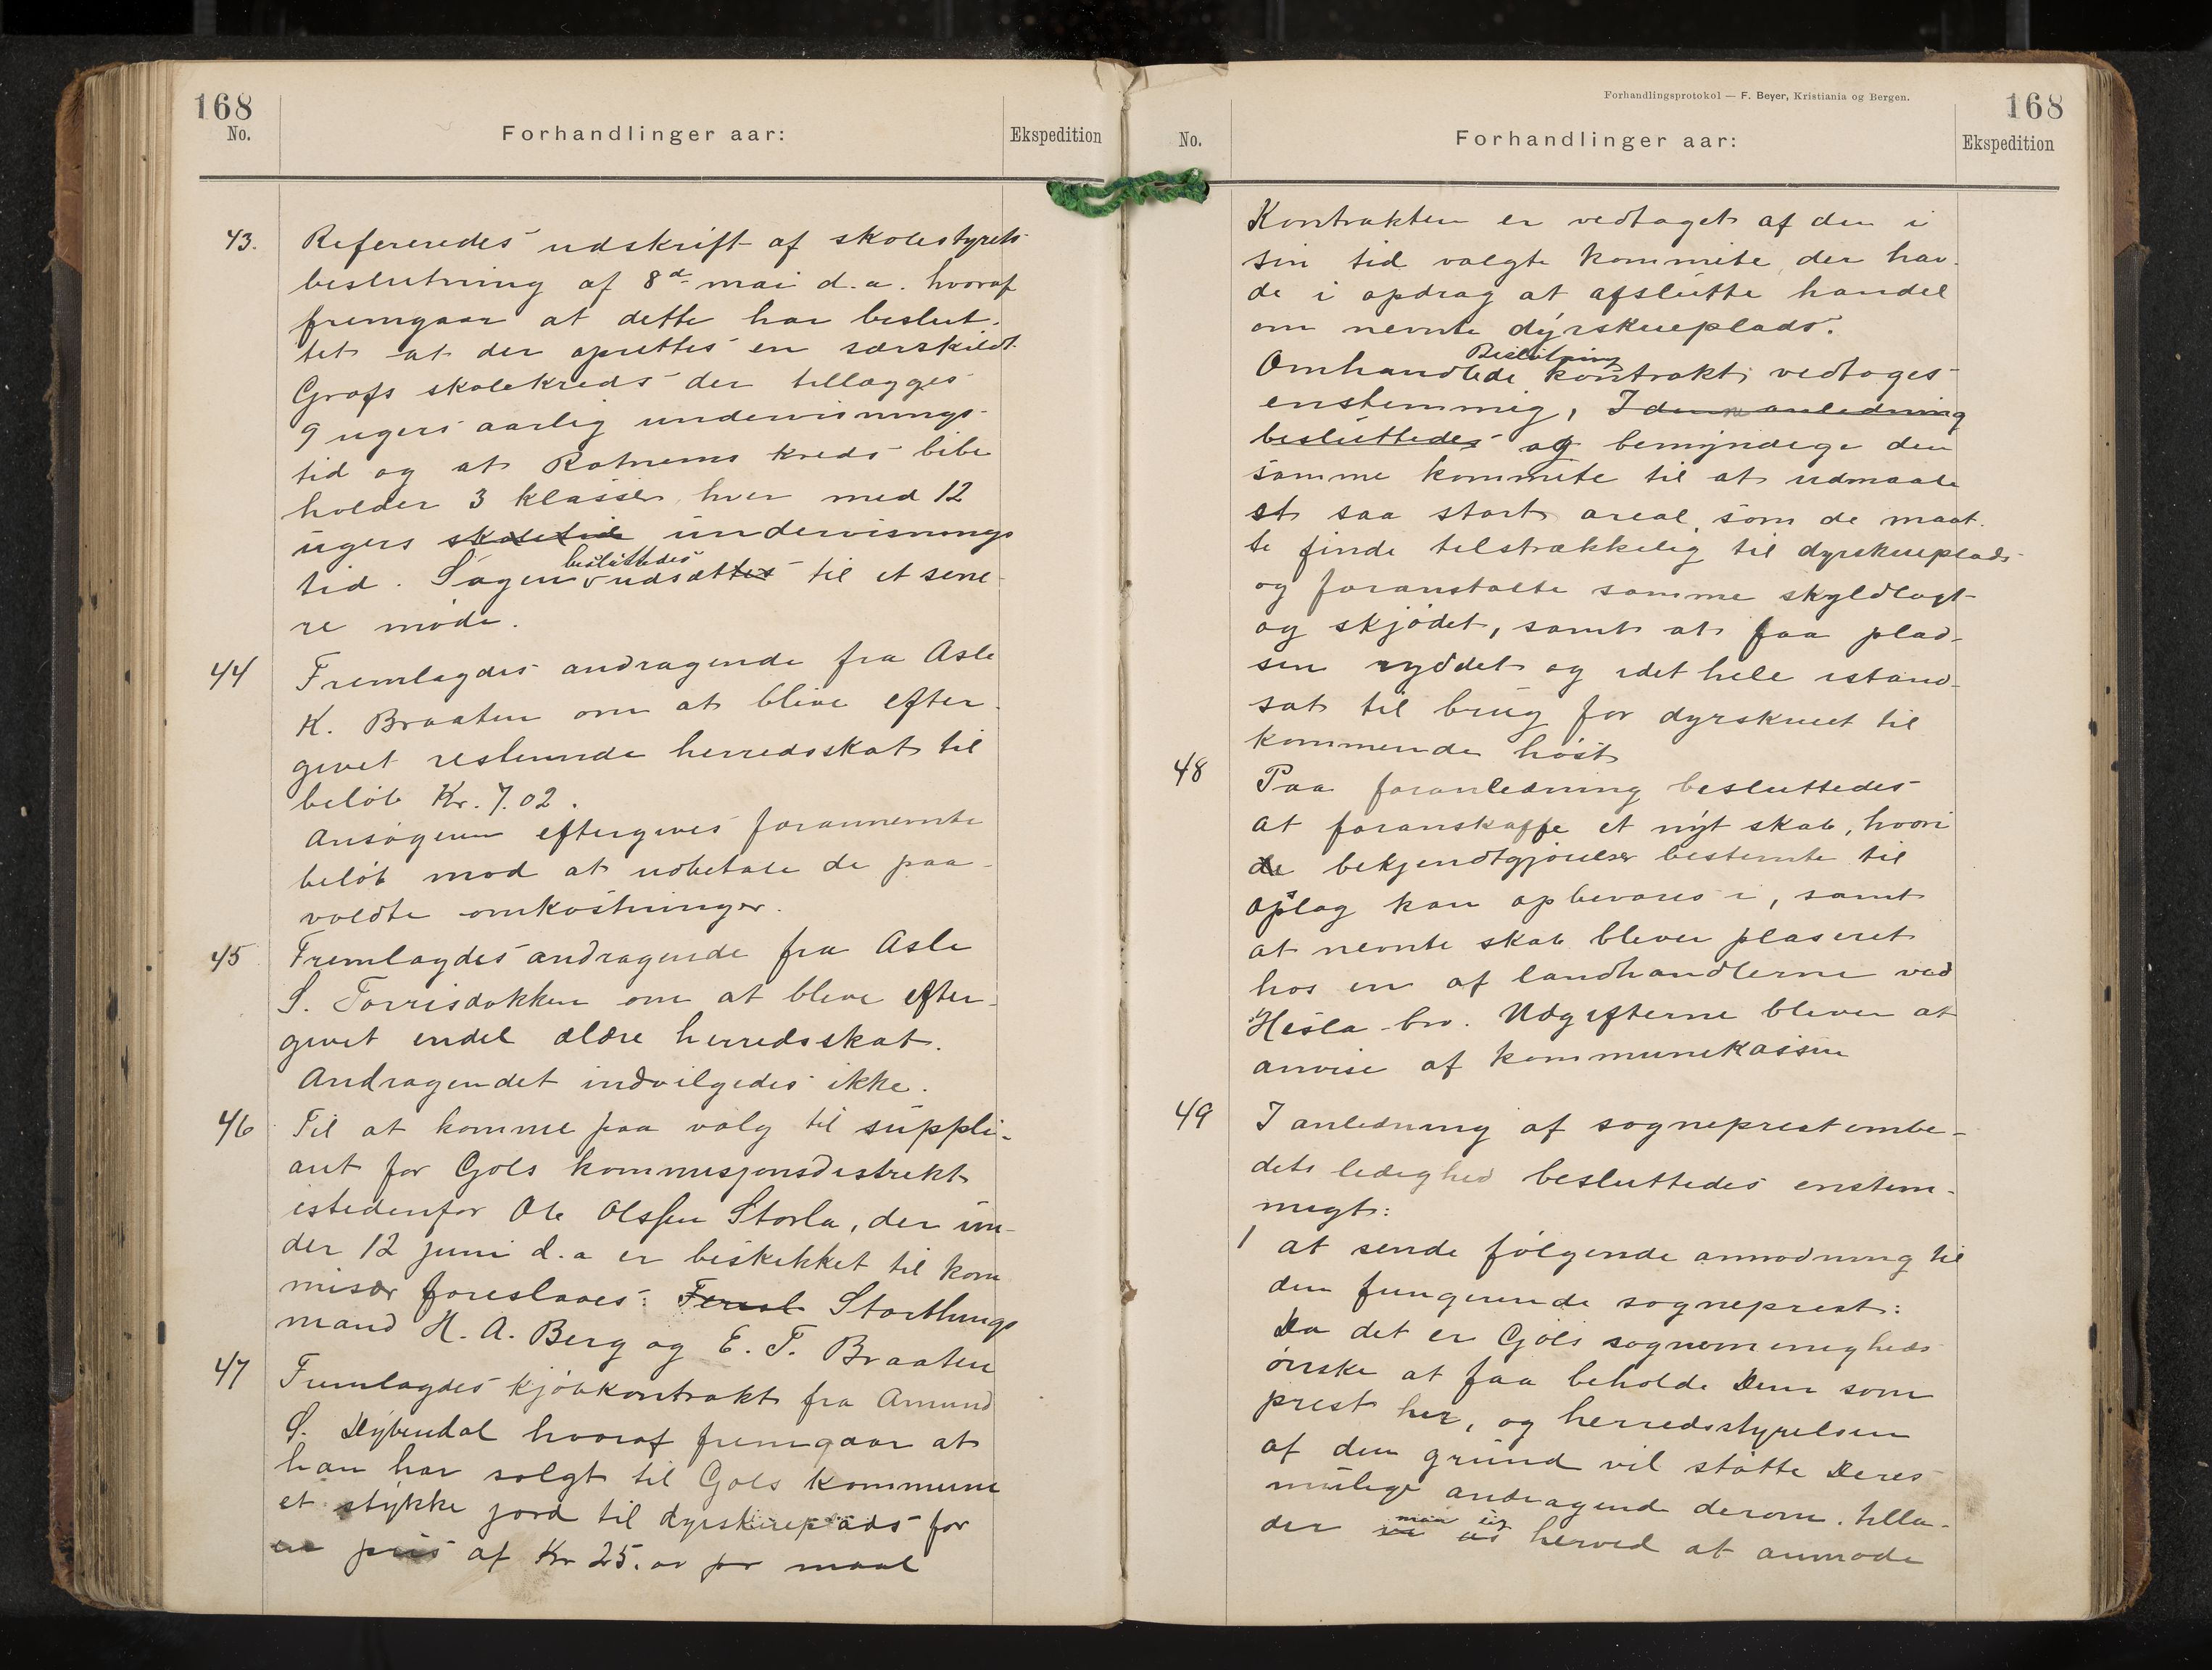 168
No.
Forhandlinger aar:
Ekspedition
43. Refereredes udskrift af skolestyrets
beslutning af 8de mai d.a. hvoraf
fremgaar at dette har beslut-
tet at der oprettes en særskildt
Grøfs skolekreds der tillægges
9 ugers aarlig undervisnings-
tid og at Rotnems kreds bibe
holder 3 klasser, hver med 12
ugers skoletid undervisnings
besluttedes
tid. Sagen udsættes til et sene-
re møde.
44 Fremlagdes andragende fra Asle
K. Braaten om at blive efter-
givet resterende herredsskat til
beløb Kr. 7.02.
Ansøgeren eftergives forannemte
beløb mod at udbetale de paa-
voldte omkostninger.
45 Fremlagdes andragende fra Asle
S. Torrisdokken om at blive efter-
givet endel ældre herredsskat.
Andragendet indvilgedes ikke.
46 Til at komme paa valg til suppli-
ant for Gols kommisjonsdistrikt
istedenfor Ole Olssen Storla, der un-
der 12 juni d.a er beskikket til kom
misær foreslaaes: Storthings
mand H. A. Berg og E. T. Braaten
47 Fremlagdes kjøbkontrakt fra Amund
S. Dybendal hvoraf fremgaar at
han har solgt til Gols kommune
et stykke jord til dyrskueplads for
en pris af Kr 25.00 pr maal
Forhandlingsprotokol — F. Beyer, Kristiania og Bergen.
168
No.
Forhandlinger aar:
Ekspedition
Kontrakten er vedtaget af den i
sin tid valgte kommite, der hav-
de i opdrag at afslutte handel
om nevnte dyrskueplads.
Beslutning
Omhandlede kontrakt vedtages
enstemmig, I den anledning
besluttedes og bemyndige den
samme kommite til at udmaale
et saa stort areal, som de maat-
te finde tilstrækkelig til dyrskueplads
og foranstalte samme skyldlagt
og skjødet, samt at faa plad-
sen ryddet og idet hele istand-
sat til brug for dyrskuet til
kommende høst
48 Paa foranledning besluttedes
at foranskaffe et nyt skab, hvori
de bekjendtgjørelser bestemte til
opslag kan opbevares i, samt
at nevnte skab bliver plaseret
hos en af landhandlerne ved
Hesla-bro. Udgifterne bliver at
anvise af kommunekassen
49 I anledning af sogneprestembe-
dets ledighed besluttedes enstem-
migt:
1 at sende følgende anmodning til
den fungerende sogneprest:
Da det er Gols sognemenigheds
ønske at faa beholde Dem som
prest her, og herredsstyrelsen
af den grund vil støtte Deres
mulige andragende derom, tilla-
maa sig
der vi os herved at anmode